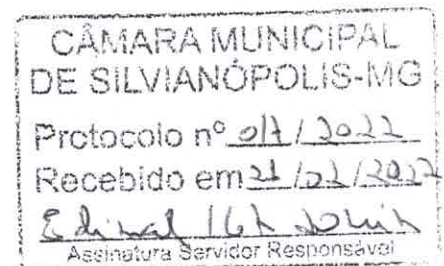 CÂMARA MUNICIPAL
DE SILVIANÓPOLIS-MG
Protocolo nº 017 / 2022
Recebido em 21 / 02 / 2022
16h 20min
Assinatura Servidor Responsável